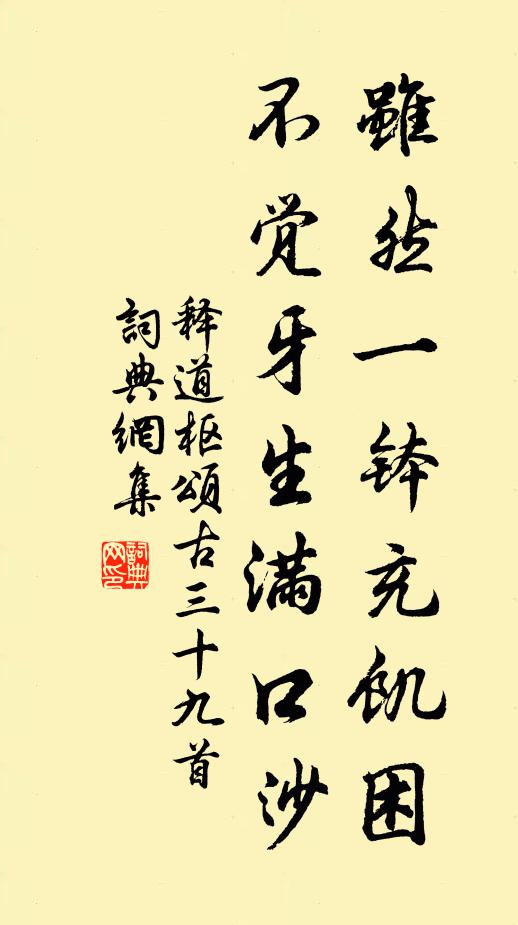 雖然一鉢充飢困
不覺牙生滿口沙
释道枢頌古三十九首
詞典網集
詞典网印